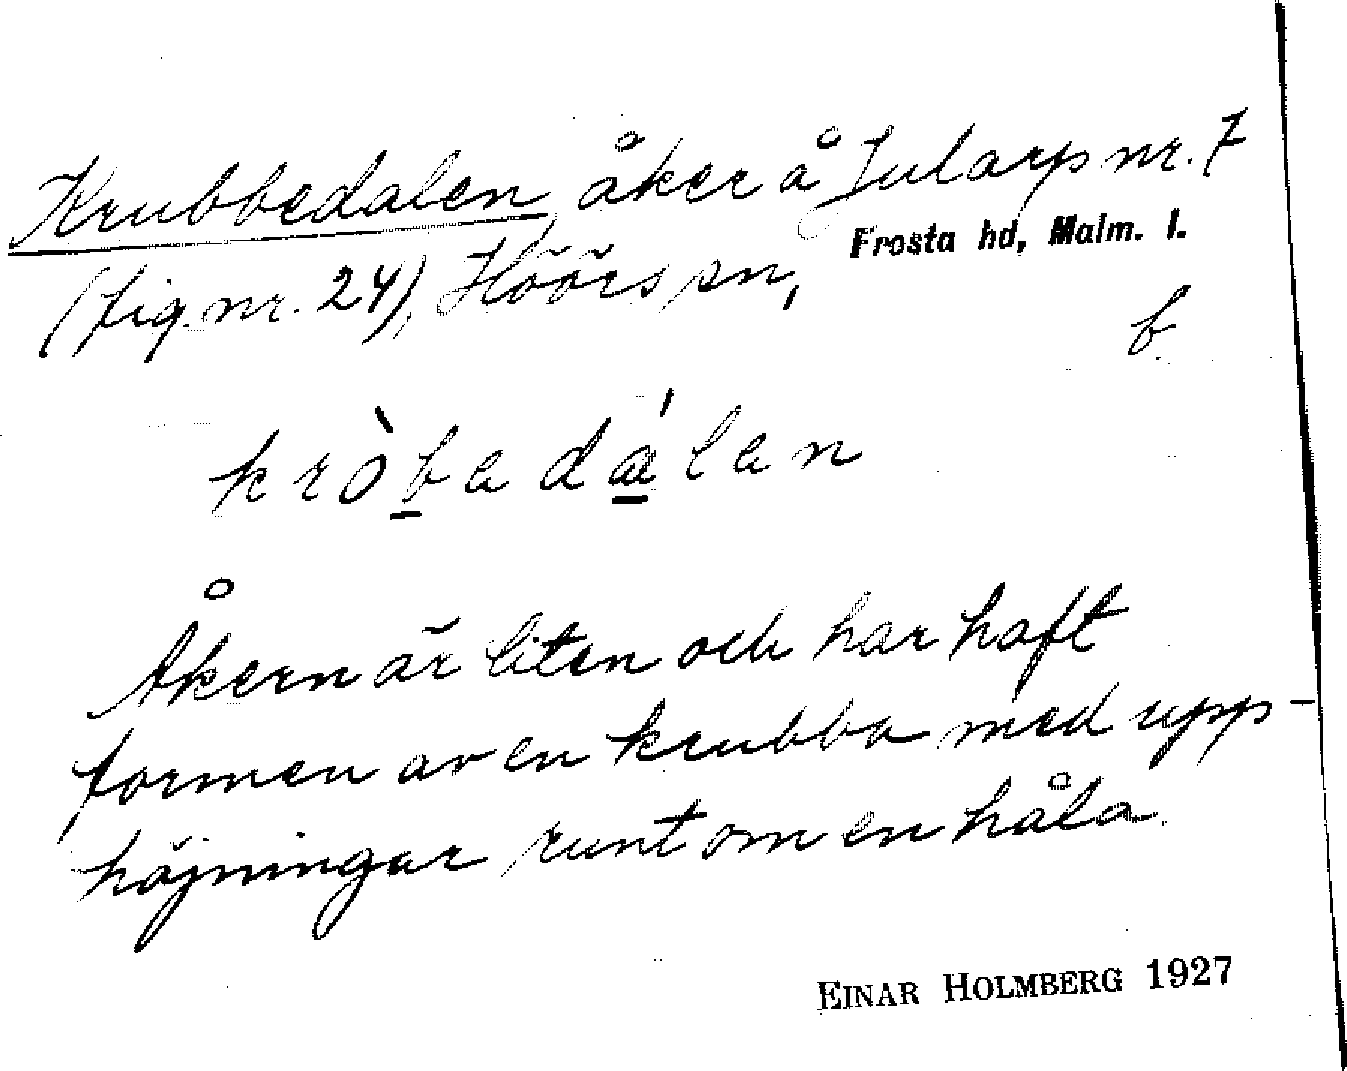 Krubbedalen, åker å Jularp nr. 7
(fig. nr. 24), Höörs sn, Frosta hd, Malm. l.
b
kròbadálan
Åkern är liten och har haft
formen av en krubba med upp-
höjningar runt om en håla.
EINAR HOLMBERG 1927